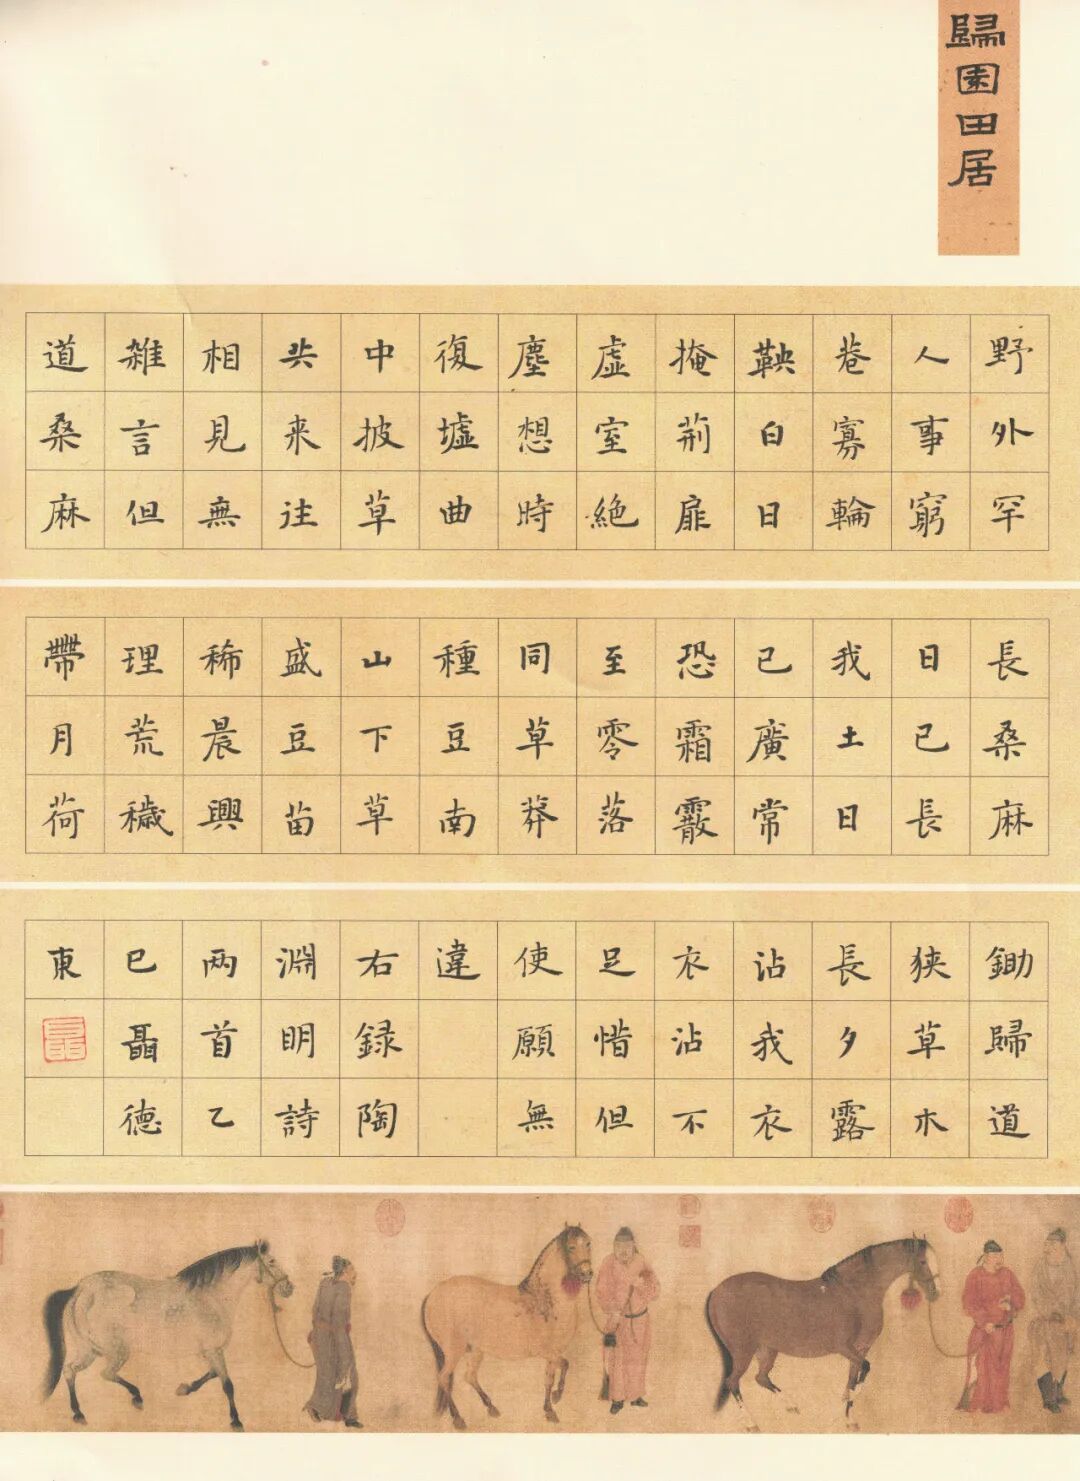 歸園田居
野外罕
人事窮
巷寡輪
鞅白日
掩荊扉
虛室絶
塵想時
復墟曲
中披草
共来往
相見無
雜言但
道桑麻
長桑麻
日已長
我土日
已廣常
恐霜霰
至零落
同草莽
種豆南
山下草
盛豆苗
稀晨興
理荒穢
帶月荷
鋤歸道
狹草木
長夕露
沾我衣
衣沾不
足惜但
使願無
違
右録陶
淵明詩
两首乙
巳聶德
東